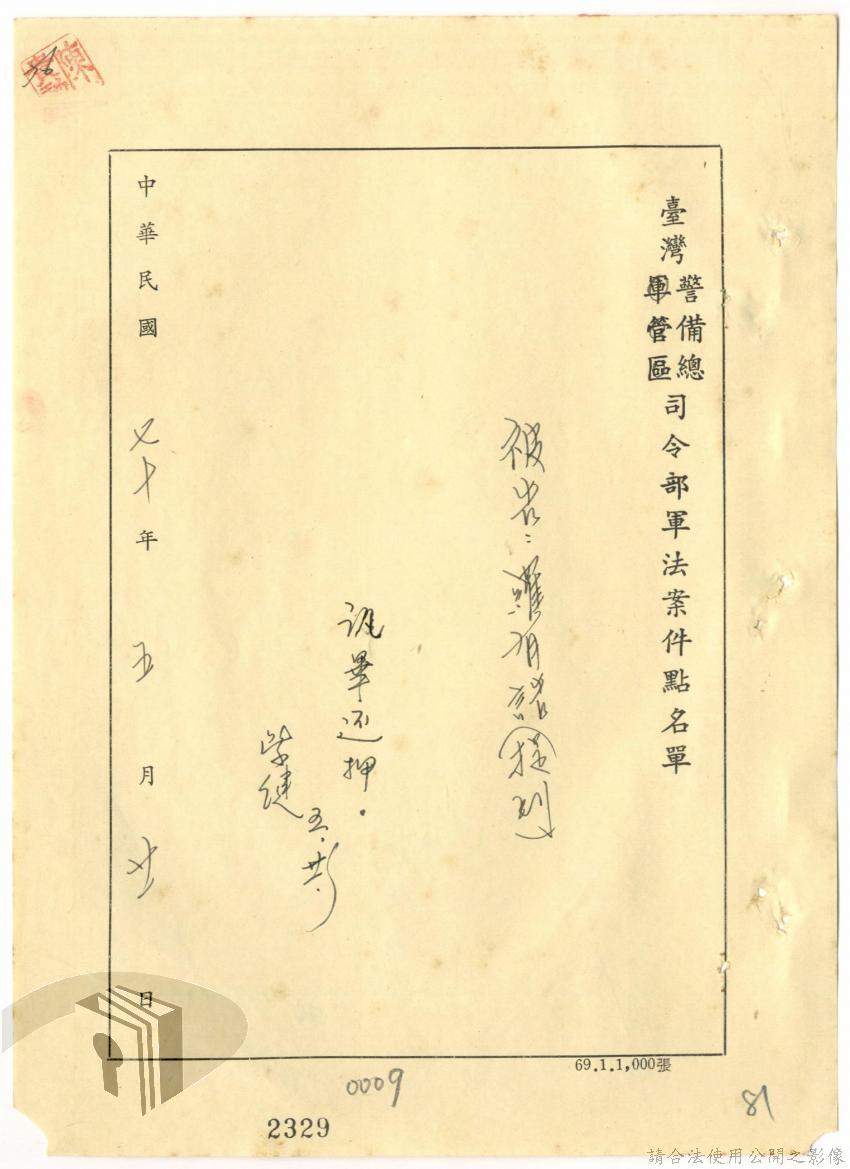 臺灣警備總軍管區司令部軍法案件點名單
被告:
訊畢还押。
五.廿.
中華民國七十年五月廿日
69.1.1,000張
0009
2329
81
請合法使用公開之影像